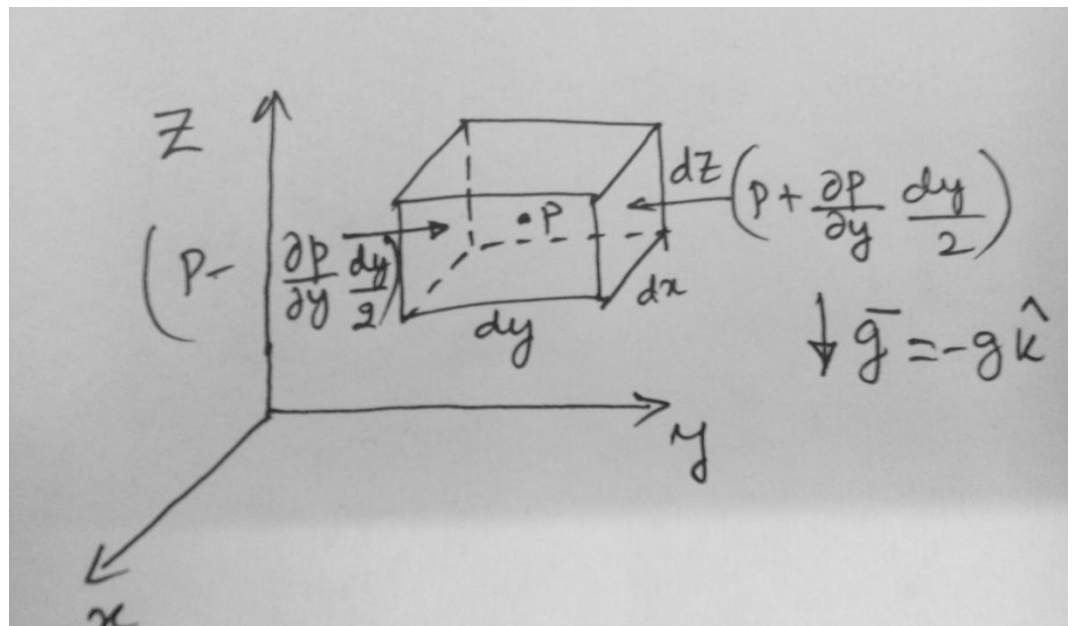 Z
dz (P + ∂P/∂y dy/2)
•P
(P - ∂P/∂y dy/2)
dx
dy
↓ g̅ = -g k̂
y
x